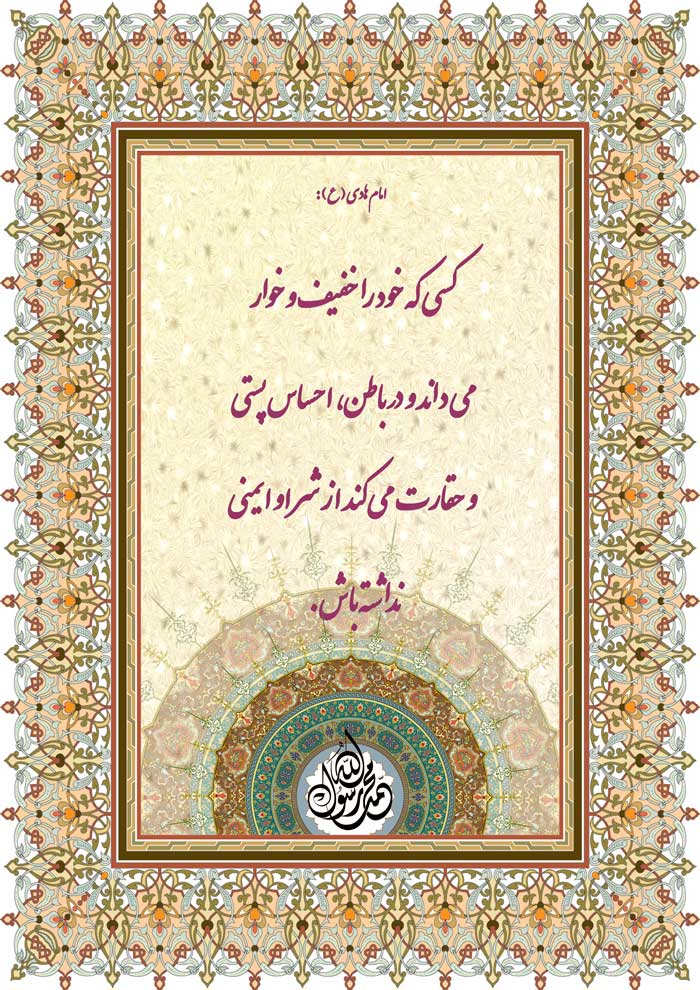 امام هادی (ع):
کسی که خود را خفیف و خوار
می داند و در باطن، احساس پستی
و حقارت می کند از شر او ایمنی
نداشته باش.
محمد رسول الله